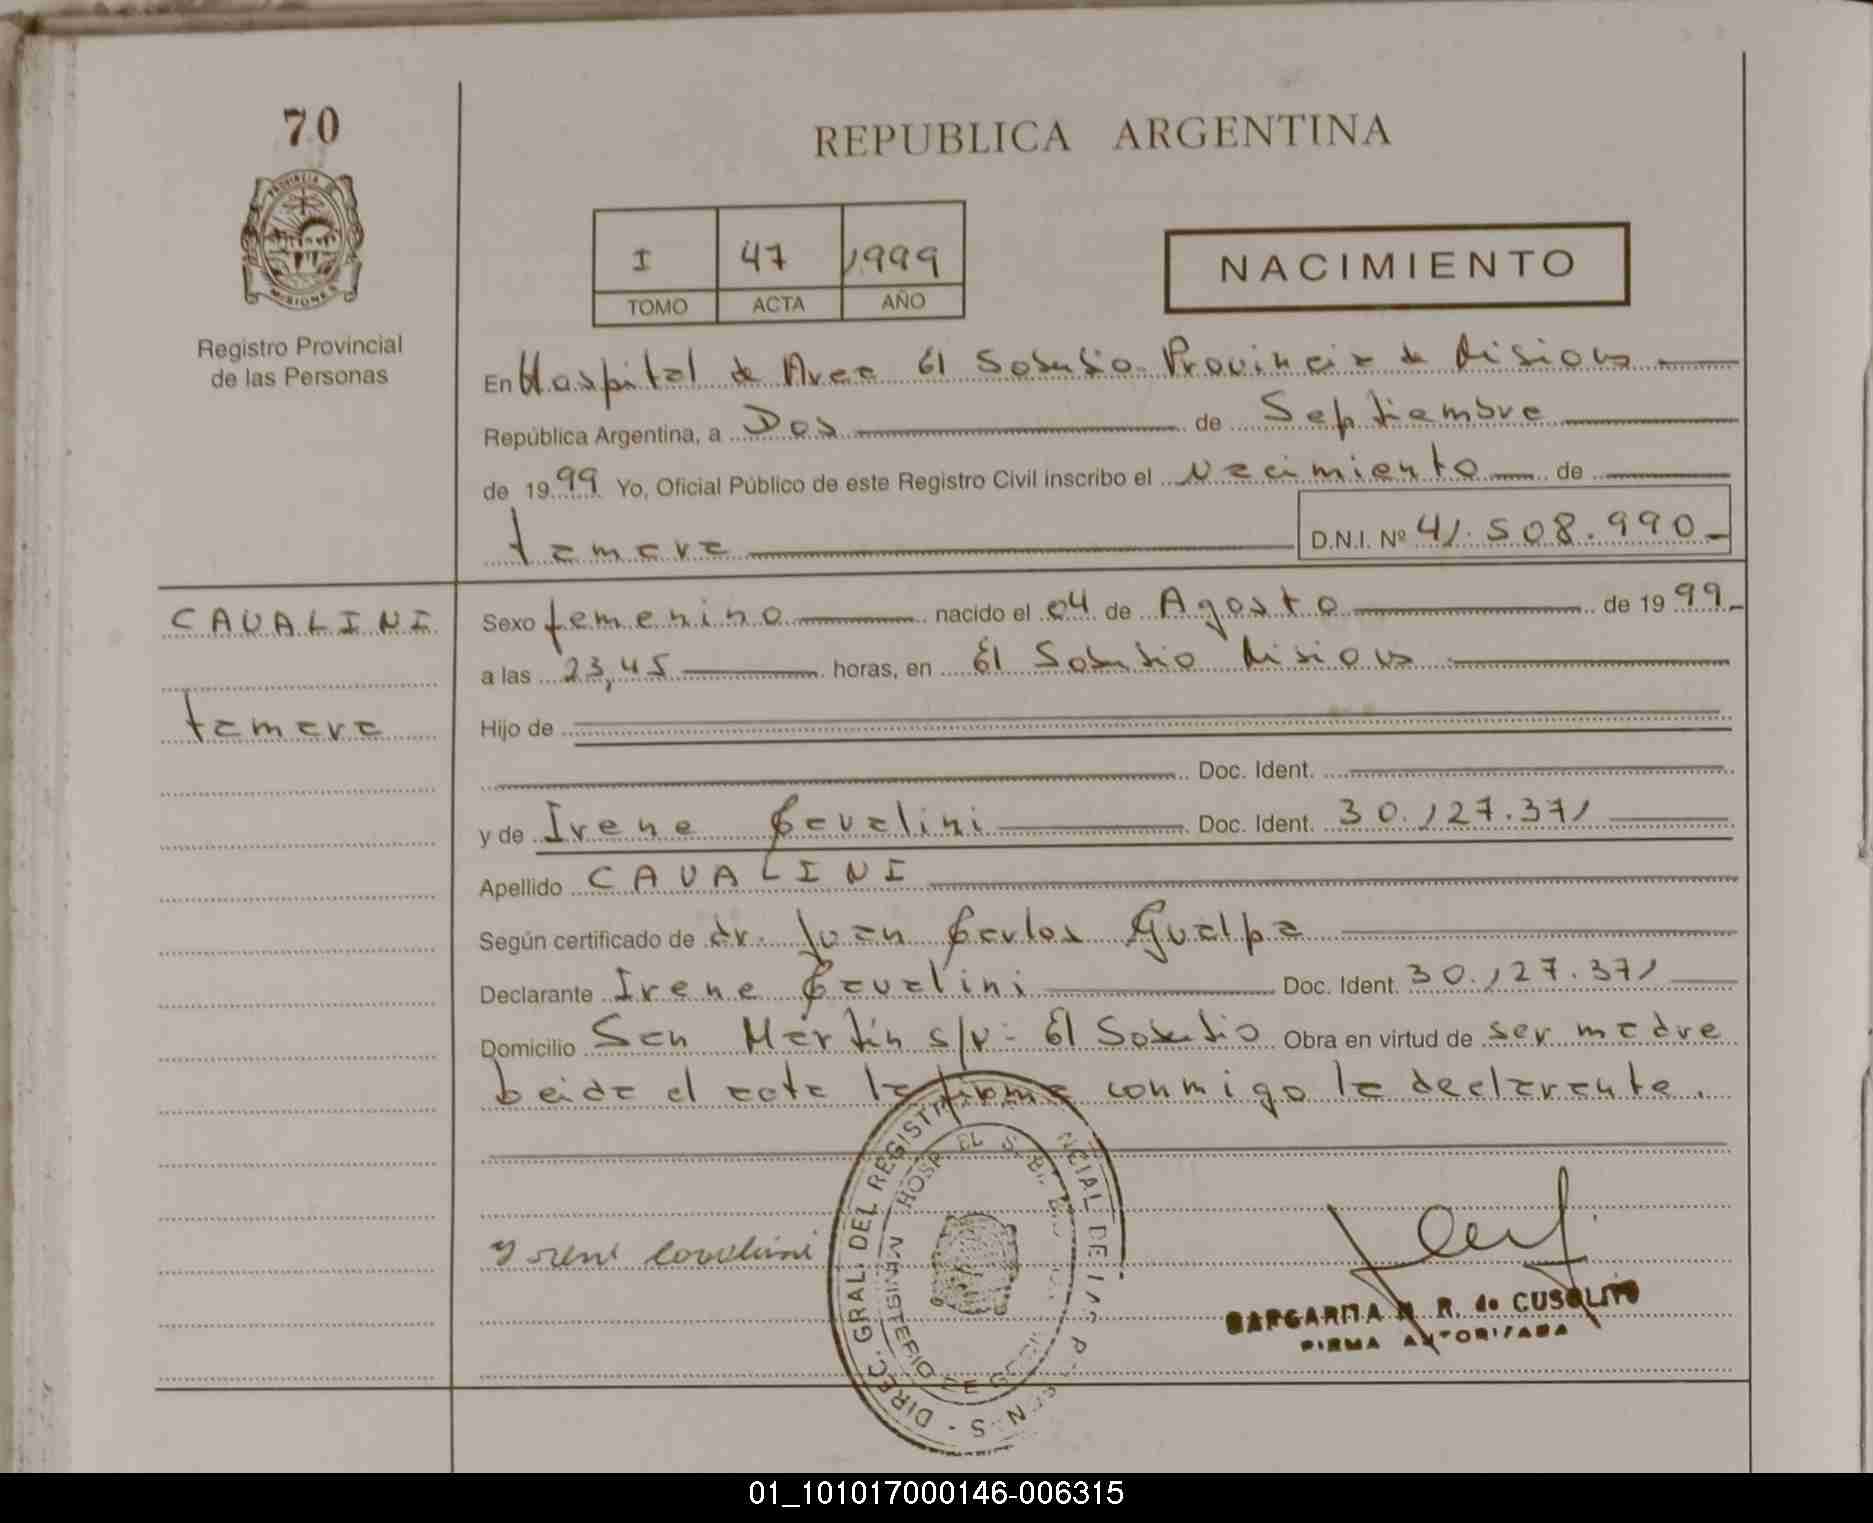 70
REPUBLICA ARGENTINA
PROVINCIA DE
MISIONES
Registro Provincial
de las Personas
I 47 1999
TOMO ACTA AÑO
NACIMIENTO
En Hospital de Area El Soberbio Provincia de Misiones
República Argentina, a Dos de Septiembre
de 1999 Yo, Oficial Público de este Registro Civil inscribo el Nacimiento de
tamara D.N.I. Nº 41.508.990
CAVALINI
tamara
Sexo femenino nacido el 04 de Agosto de 1999
a las 23,45 horas, en El Soberbio Misiones
Hijo de
Doc. Ident.
y de Irene Cavalini Doc. Ident. 30.127.371
Apellido CAVALINI
Según certificado de dr. Juan Carlos Gualpa
Declarante Irene Cavalini Doc. Ident. 30.127.371
Domicilio San Martín s/n- El Soberbio Obra en virtud de ser madre
Leida el acta la firma conmigo la declarante.
DIREC. GRAL. DEL REGIST NCIAL DE LAS P
HOSP. EL S
MINISTERIO DE
Irene Cavalini
MARGARITA M. R. de CUSOLITO
FIRMA AUTORIZADA
01_101017000146-006315